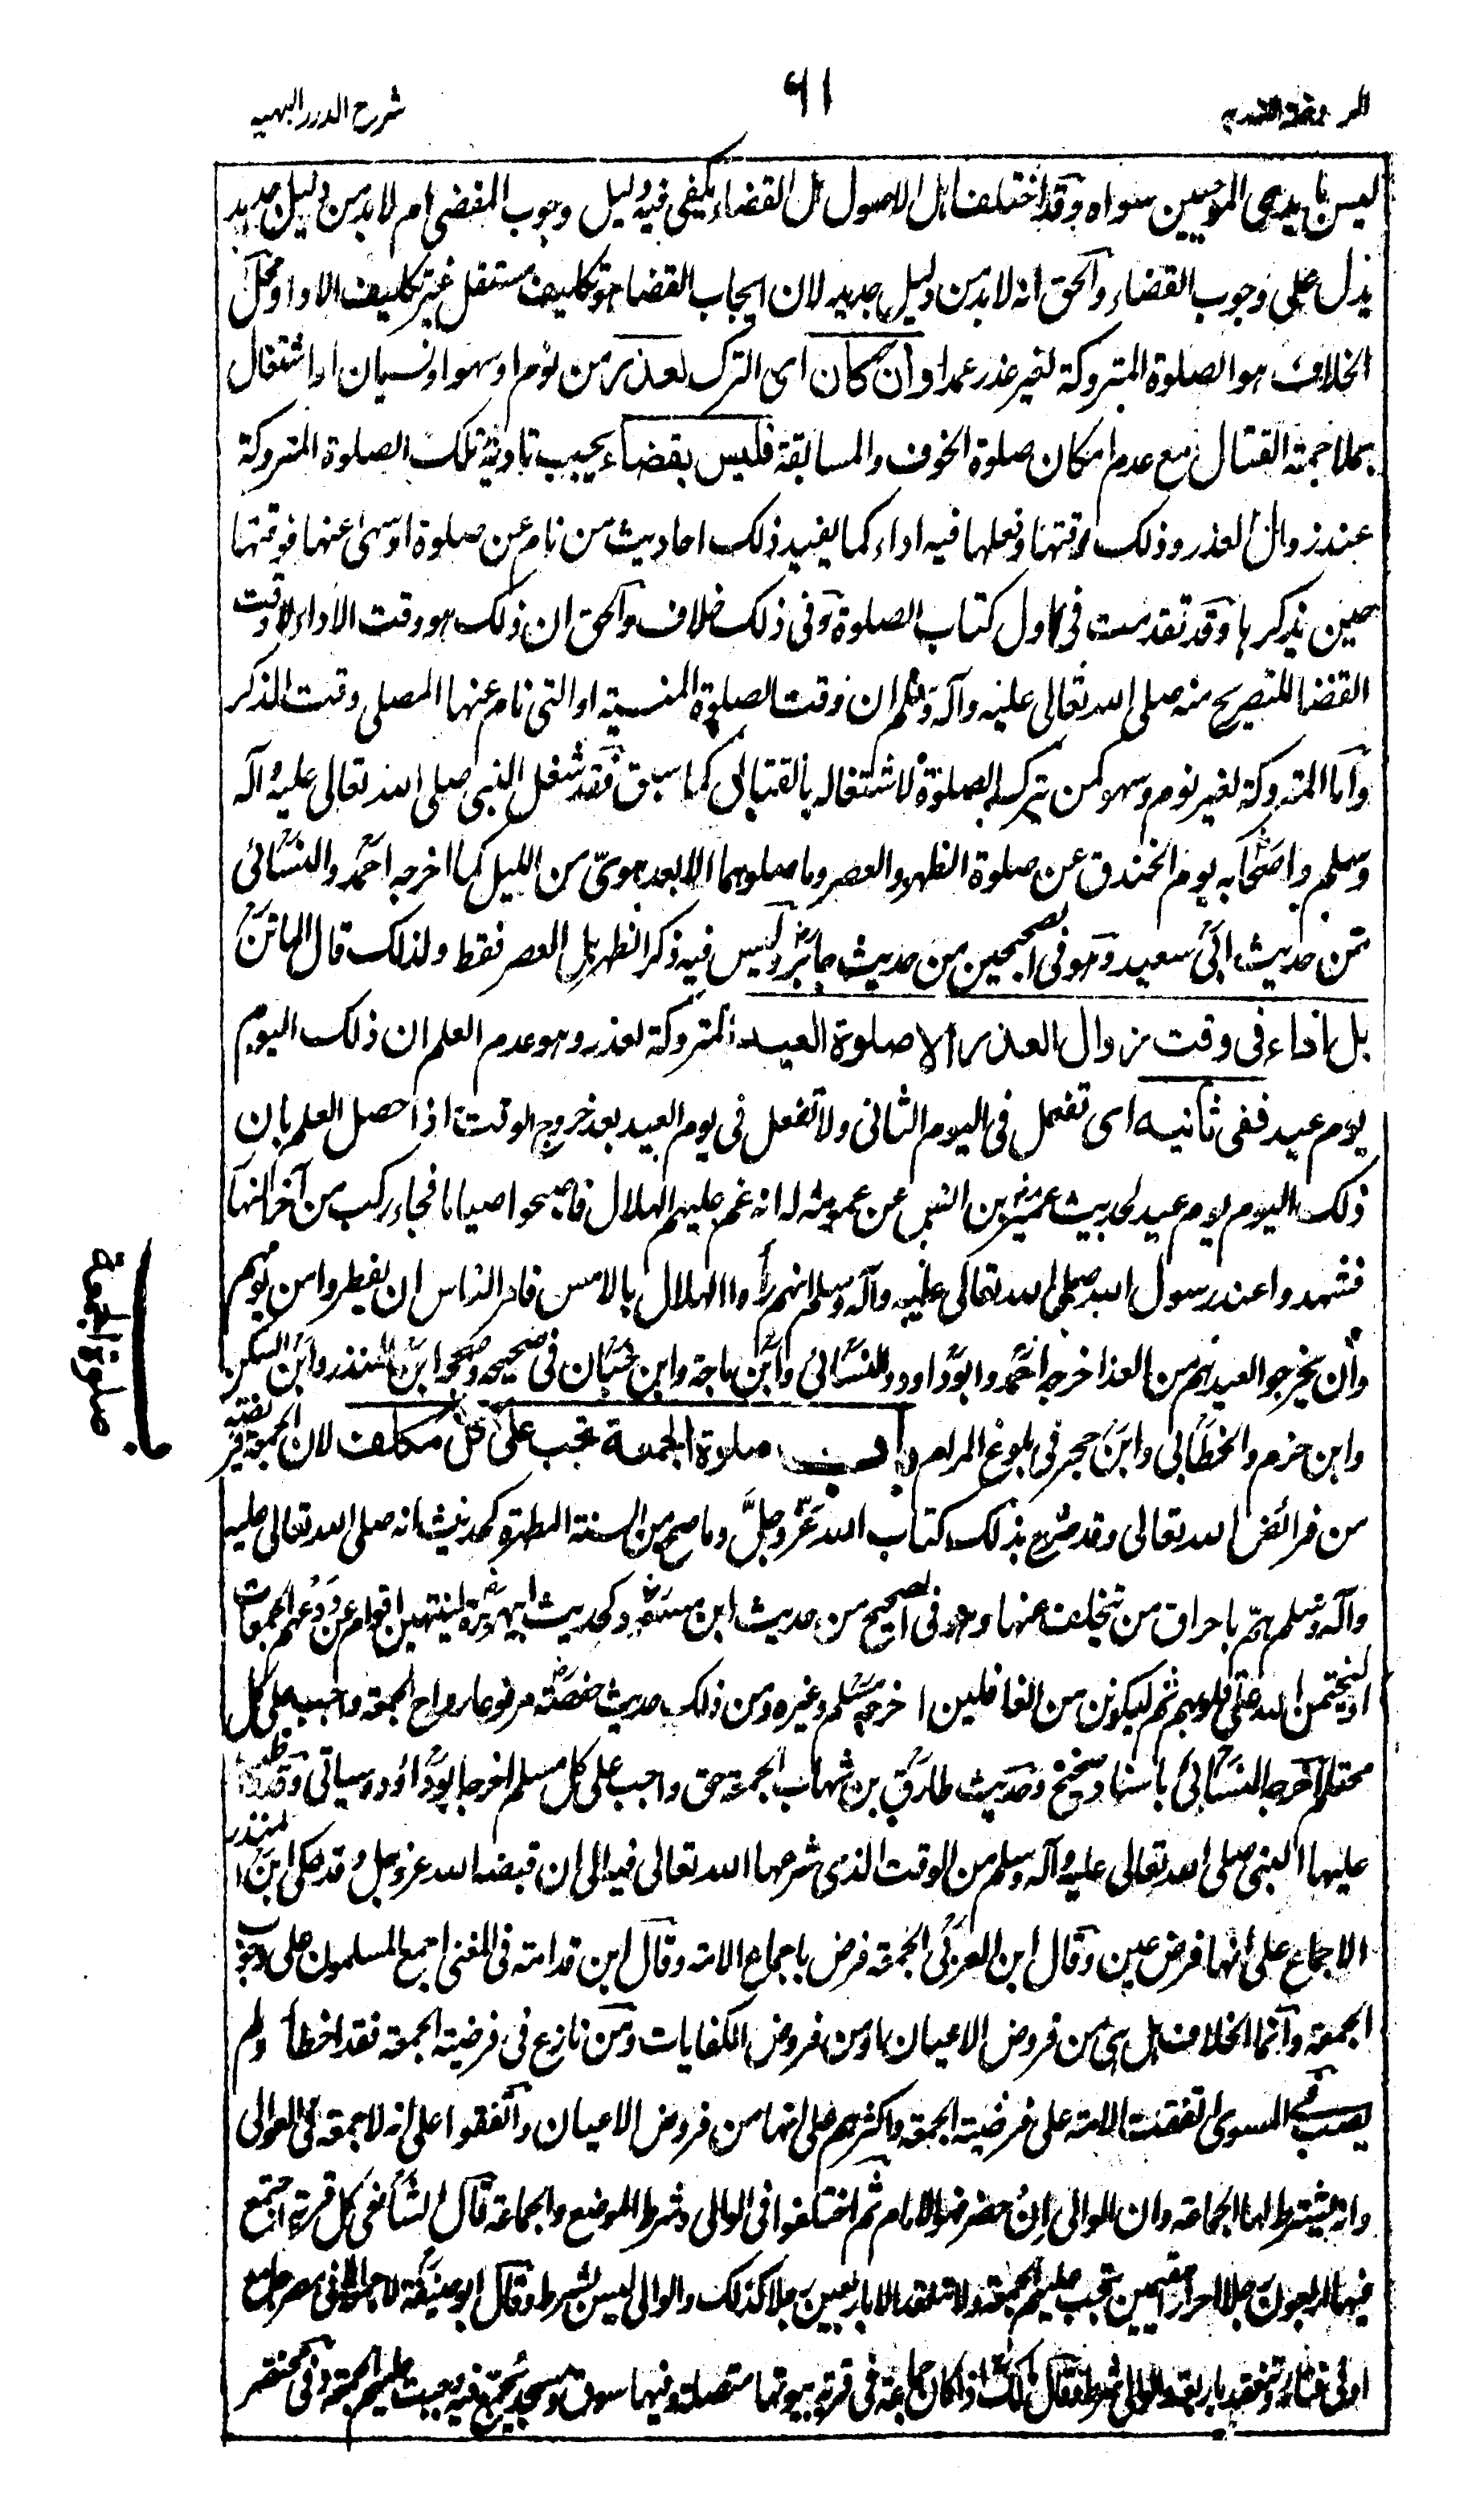 الروضة الندية
٩١
شرح الدرر البهيه
ليس بايدى الموجبين سواه وقد اختلف اهل الاصول هل القضاء يكفى فيه دليل وجوب المقضى ام لا بد من دليل جديد
يدل على وجوب القضاء والحق انه لا بد من دليل جديد لان ايجاب القضا هو تكليف مستقل غير تكليف الادا ومحل
الخلاف هو الصلوة المتروكة لغير عذر عمدا وان كان اى الترك لعذر من نوم او سهو او نسيان او اشتغال
بملاحمة القتال مع عدم امكان صلوة الخوف والمسايفة فليس بقضاء يجب تادية تلك الصلوة المتروكة
عند زوال العذر وذلك وقتها وفعلها فيه اداء كما يفيد ذلك احاديث من نام عن صلوة او سهى عنها فوقتها
حين يذكرها وقد تقدمت فى اول كتاب الصلوة وفى ذلك خلاف والحق ان ذلك هو وقت الاداء لا وقت
القضا للتصريح منه صلى الله تعالى عليه وآله وسلم ان وقت الصلوة المنسية او التى نام عنها المصلى وقت الذكر
واما المتروكة لغير نوم وسهو كمن يترك الصلوة لاشتغاله بالقتال كما سبق فقد شغل النبى صلى الله تعالى عليه وآله
وسلم واصحابه يوم الخندق عن صلوة الظهر والعصر وما صلوهما الا بعد هوىّ من الليل كما اخرجه احمد والنسائى
من حديث ابى سعيد وهو فى الصحيحين من حديث جابر وليس فيه ذكر الظهر بل العصر فقط ولذلك قال الماتن
بل اداء فى وقت زوال العذر الا صلوة العيد المتروكة لعذر وهو عدم العلم ان ذلك اليوم
يوم عيد ففى ثانيه اى تفعل فى اليوم الثانى ولا تفعل فى يوم العيد بعد خروج الوقت اذا حصل العلم بان
ذلك اليوم يوم عيد لحديث عمير بن انس عن عمومة له انه غم عليهم الهلال فاصبحوا صياما فجاء ركب من آخر النهار
فشهدوا عند رسول الله صلى الله تعالى عليه وآله وسلم انهم رأوا الهلال بالامس فامر الناس ان يفطروا من يومهم
وان يخرجوا لعيدهم من الغد اخرجه احمد وابو داود والنسائى وابن ماجة وابن حبان فى صحيحه وصححه ابن المنذر وابن السكن
وابن حزم والخطابى وابن حجر فى بلوغ المرام باب صلوة الجمعة تجب على كل مكلف لان الجمعة فريضة
من فرائض الله تعالى وقد صرح بذلك كتاب الله عزّ وجلّ وما صح من السنة المطهرة كحديث انه صلى الله تعالى عليه
وآله وسلم همّ باحراق من يتخلف عنها وهو فى الصحيح من حديث ابن مسعود وكحديث ابيهريرة لينتهين اقوام عن ودعهم الجمعات
او ليختمن الله على قلوبهم ثم ليكونن من الغافلين اخرجه مسلم وغيره ومن ذلك حديث حفصة مرفوعا رواح الجمعة واجب على كل
محتلم اخرجه النسائى باسناد صحيح وحديث طارق بن شهاب الجمعة حق واجب على كل مسلم اخرجه ابو داؤد وسياتى وقد واظب
عليها النبى صلى الله تعالى عليه وآله وسلم من الوقت الذى شرعها الله تعالى فيه الى ان قبضه الله عز وجل وقد حكى ابن المنذر
الاجماع على انها فرض عين وقال ابن العربى الجمعة فرض باجماع الامة وقال ابن قدامة فى المغنى اجمع المسلمون على وجوب
الجمعة وانما الخلاف هل هى من فروض الاعيان او من فروض الكفايات ومن نازع فى فرضية الجمعة فقد اخطأ ولم
يصب فى المسوى اتفقت الامة على فرضية الجمعة واكثرهم على انها من فروض الاعيان واتفقوا على انه لا جمعة فى العوالى
وانه يشترط لها الجماعة وان الوالى ان حضر فهو الامام ثم اختلفوا فى الوالى وشرط الموضع والجماعة قال الشافعى كل قرية اجتمع
فيها اربعون رجلا احرارا مقيمين تجب عليهم الجمعة ولا تنعقد الا باربعين رجلا كذلك والوالى ليس بشرط وقال ابو حنيفة لا جمعة الا فى مصر جامع
او فى فنائه وتنعقد باربعة والوالى شرط وقال مالك اذا كان جماعة فى قرية بيوتها متصلة وفيها سوق ومسجد يجمع فيه وجبت عليهم الجمعة وفى مختصر
باب صلوة الجمعة